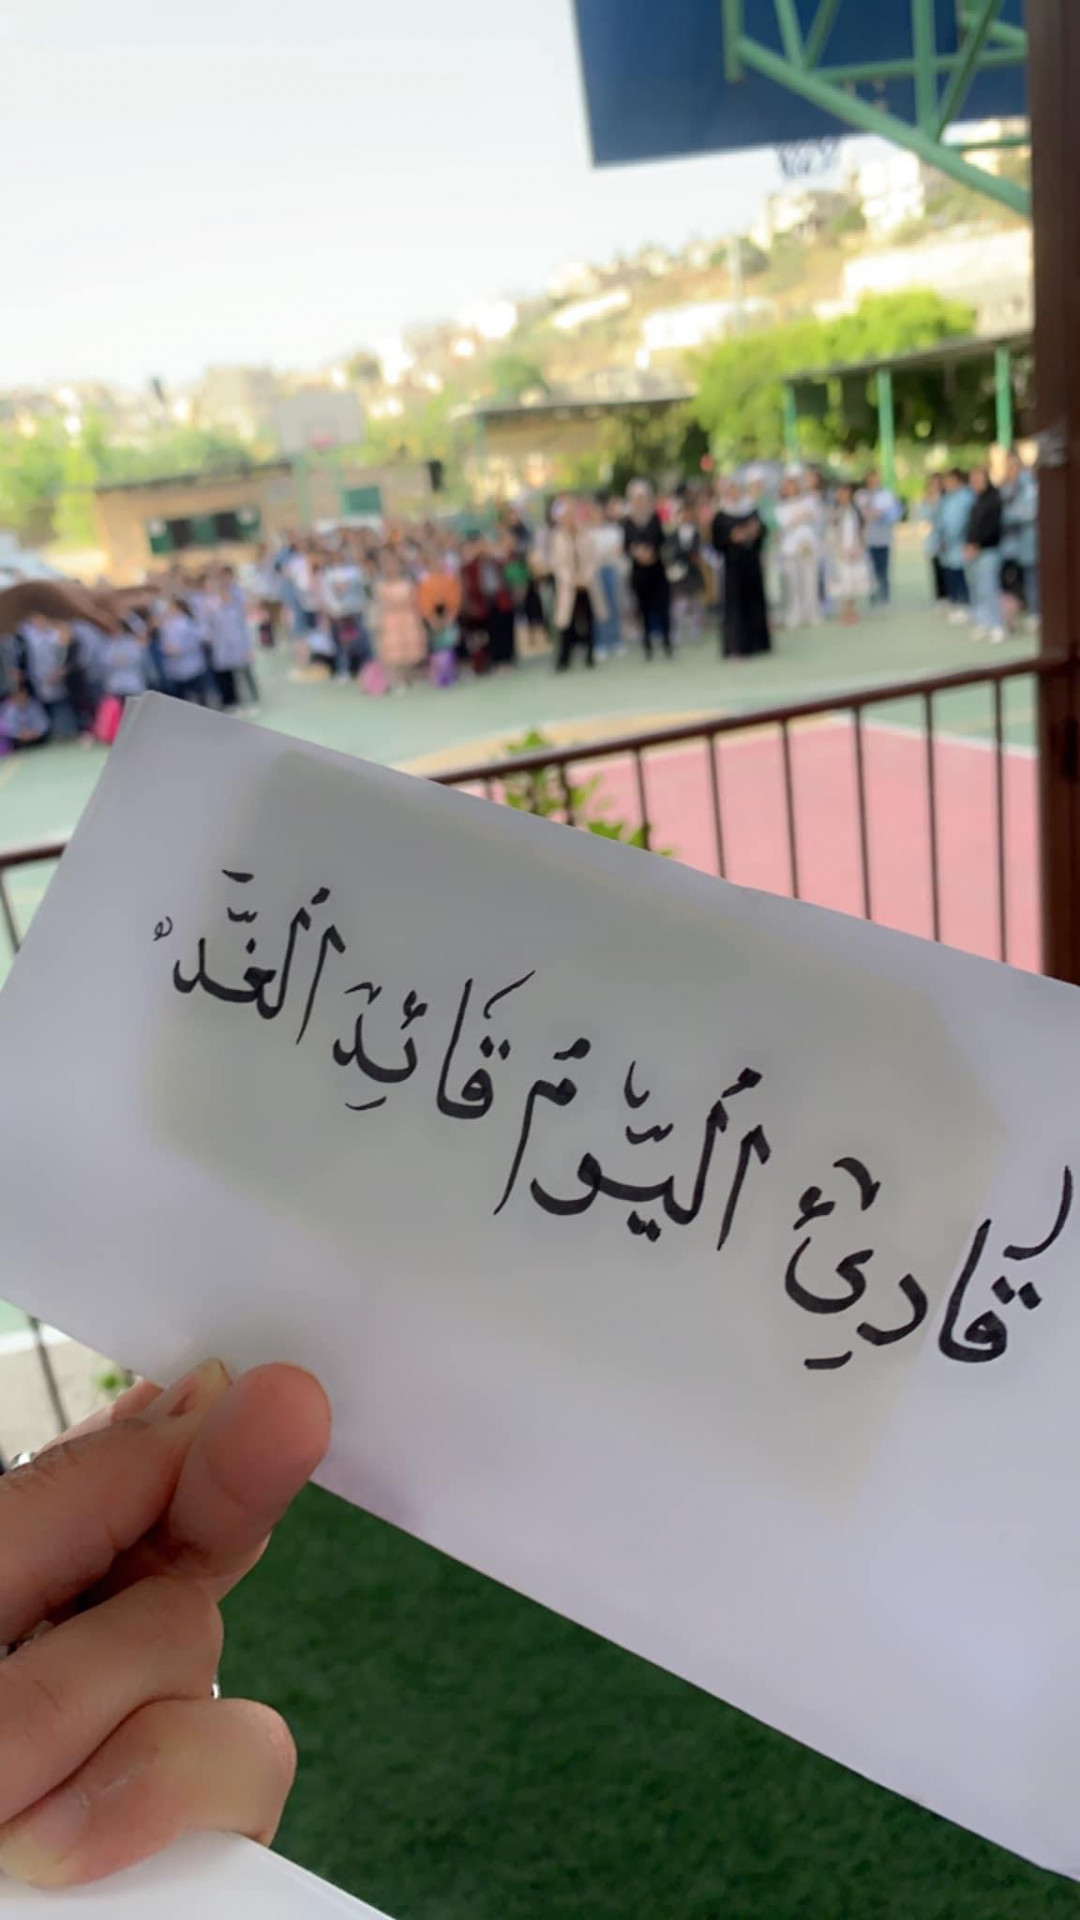 قَارِئُ اليَّومُ قَائِدِ الغَّد